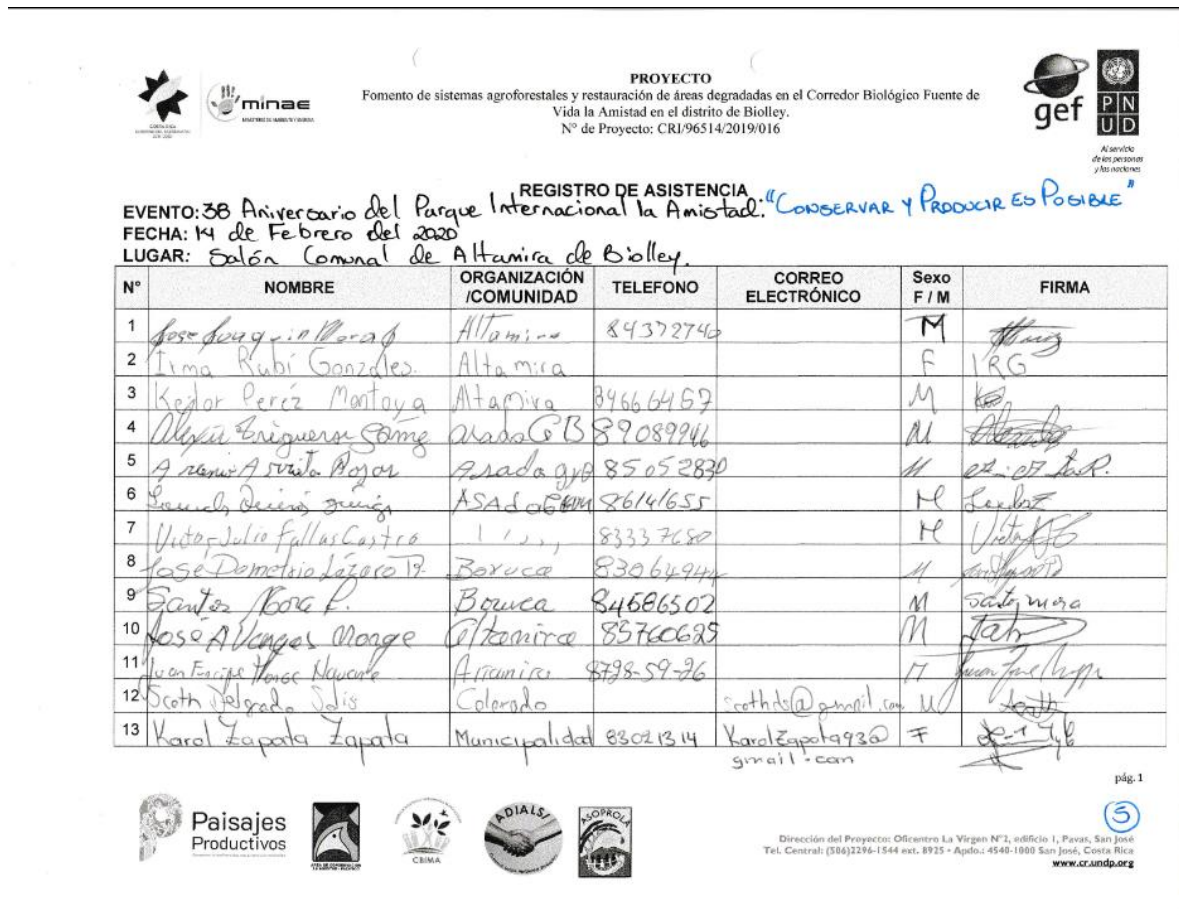 PROYECTO
Fomento de sistemas agroforestales y restauración de áreas degradadas en el Corredor Biológico Fuente de
Vida la Amistad en el distrito de Biolley.
N° de Proyecto: CRI/96514/2019/016
minae
gef
PN
UD
Al servicio
de las personas
y las naciones
REGISTRO DE ASISTENCIA
EVENTO: 38 Aniversario del Parque Internacional la Amistad: "CONSERVAR Y PRODUCIR ES POSIBLE"
FECHA: 14 de Febrero del 2020
LUGAR: Salón Comunal de Altamira de Biolley.
N° NOMBRE ORGANIZACIÓN /COMUNIDAD TELEFONO CORREO ELECTRÓNICO Sexo F / M FIRMA
1 Jose Joaquin Altamira 84372740 M
2 Irma Rubí Gonzáles. Altamira F IRG
3 Keilor Peréz Montoya Altamira M
4 89089946 M
5 Asada 85052830 M
6 86141655 M
7 Victor Julio Fallas Castro 83337680 M
8 José Demetrio Lázaro Boruca 83064944 M
9 Santos Mora Boruca 84686502 M Santos mora
10 José A Vargas Monge Altamira 85760625 M
11 Juan Monge Navarro Altamira 8798-59-26 M
12 Scoth Delgado Solis Colorado scothds@gmail.com M
13 Karol Zapata Zapata Municipalidad 83021314 KarolZapata93@ F
gmail.com
pág. 1
5
Paisajes
Productivos
CBIMA
ADIALSI
ASOPROLA
Dirección del Proyecto: Oficentro La Virgen N°2, edificio 1, Pavas, San José
Tel. Central: (506)2296-1544 ext. 8925 • Apdo.: 4540-1000 San José, Costa Rica
www.cr.undp.org